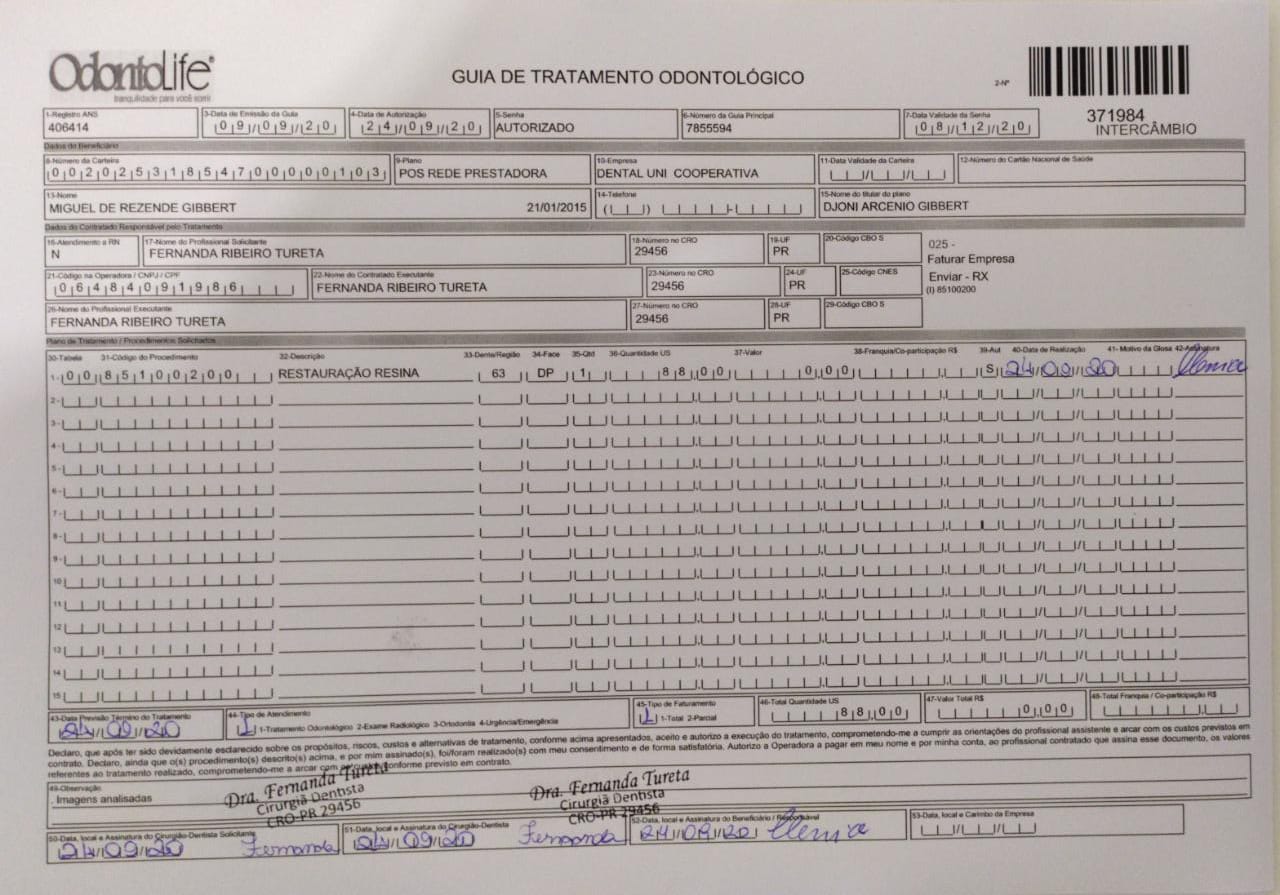 OdontoLife
tranquilidade para você sorrir
GUIA DE TRATAMENTO ODONTOLÓGICO
2-Nº
371984
INTERCÂMBIO
1-Registro ANS
406414
3-Data de Emissão da Guia
09/09/20
4-Data de Autorização
24/09/20
5-Senha
AUTORIZADO
6-Número da Guia Principal
7855594
7-Data Validade da Senha
08/12/20
Dados do Beneficiário
8-Número da Carteira
00202531854700000103
9-Plano
POS REDE PRESTADORA
10-Empresa
DENTAL UNI COOPERATIVA
11-Data Validade da Carteira
12-Número do Cartão Nacional de Saúde
13-Nome
MIGUEL DE REZENDE GIBBERT 21/01/2015
14-Telefone
15-Nome do titular do plano
DJONI ARCENIO GIBBERT
Dados do Contratado Responsável pelo Tratamento
16-Atendimento a RN
N
17-Nome do Profissional Solicitante
FERNANDA RIBEIRO TURETA
18-Número no CRO
29456
19-UF
PR
20-Código CBO S
025 -
Faturar Empresa
Enviar - RX
(I) 85100200
21-Código na Operadora / CNPJ / CPF
06484091986
22-Nome do Contratado Executante
FERNANDA RIBEIRO TURETA
23-Número no CRO
29456
24-UF
PR
25-Código CNES
26-Nome do Profissional Executante
FERNANDA RIBEIRO TURETA
27-Número no CRO
29456
28-UF
PR
29-Código CBO S
Plano de Tratamento / Procedimentos Solicitados
30-Tabela 31-Código do Procedimento 32-Descrição 33-Dente/Região 34-Face 35-Qtd 36-Quantidade US 37-Valor 38-Franquia/Co-participação R$ 39-Aut 40-Data de Realização 41- Motivo da Glosa 42-Assinatura
1- 00 85100200 RESTAURAÇÃO RESINA 63 DP 1 88,00 0,00 S 24/09/20
2-
3-
4-
5-
6-
7-
8-
9-
10
11
12
13
14
15
43-Data Previsão Término do Tratamento
24/09/20
44-Tipo de Atendimento
1 1-Tratamento Odontológico 2-Exame Radiológico 3-Ortodontia 4-Urgência/Emergência
45-Tipo de Faturamento
1 1-Total 2-Parcial
46-Total Quantidade US
88,00
47-Valor Total R$
0,00
48-Total Franquia / Co-participação R$
Declaro, que após ter sido devidamente esclarecido sobre os propósitos, riscos, custos e alternativas de tratamento, conforme acima apresentados, aceito e autorizo a execução do tratamento, comprometendo-me a cumprir as orientações do profissional assistente e arcar com os custos previstos em
contrato. Declaro, ainda que o(s) procedimento(s) descrito(s) acima, e por mim assinado(s), foi/foram realizado(s) com meu consentimento e de forma satisfatória. Autorizo a Operadora a pagar em meu nome e por minha conta, ao profissional contratado que assina esse documento, os valores
referentes ao tratamento realizado, comprometendo-me a arcar com os custos conforme previsto em contrato.
49-Observação
. Imagens analisadas
Dra. Fernanda Tureta
Cirurgiã Dentista
CRO-PR 29456
Dra. Fernanda Tureta
Cirurgiã Dentista
CRO-PR 29456
50-Data, local e Assinatura do Cirurgião-Dentista Solicitante
24/09/20 Fernanda
51-Data, local e Assinatura do Cirurgião-Dentista
24/09/20 Fernanda
52-Data, local e Assinatura do Beneficiário / Responsável
24/09/20
53-Data, local e Carimbo da Empresa